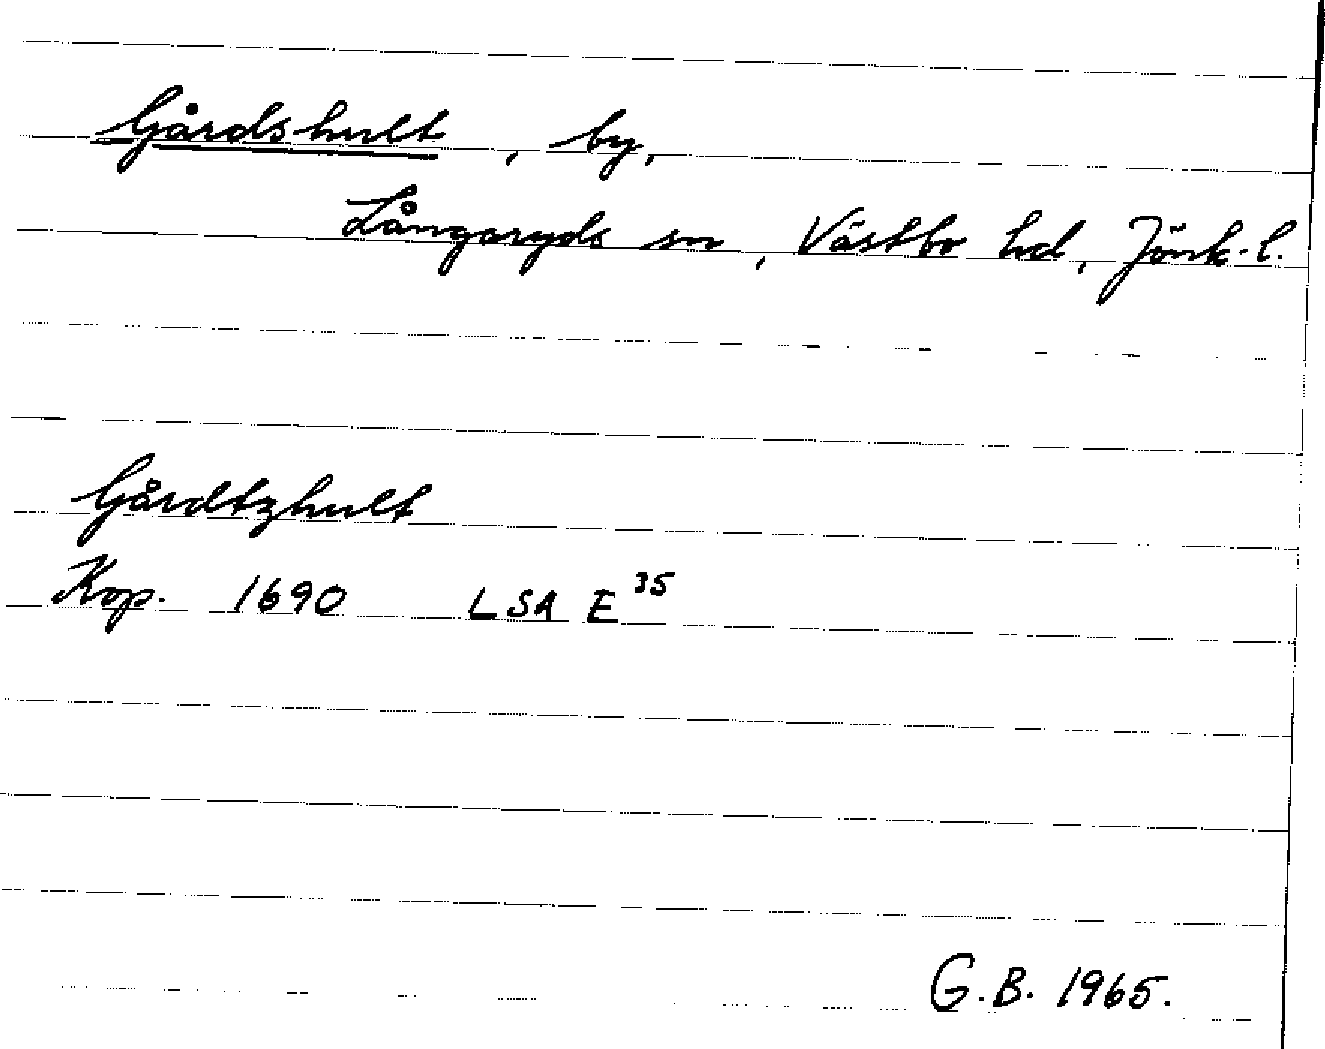 Gårdshult, by,
Långaryds sn, Västbo hd, Jönk.l.
Gårdtzhult
Kop. 1690 LSA E 35
G.B. 1965.